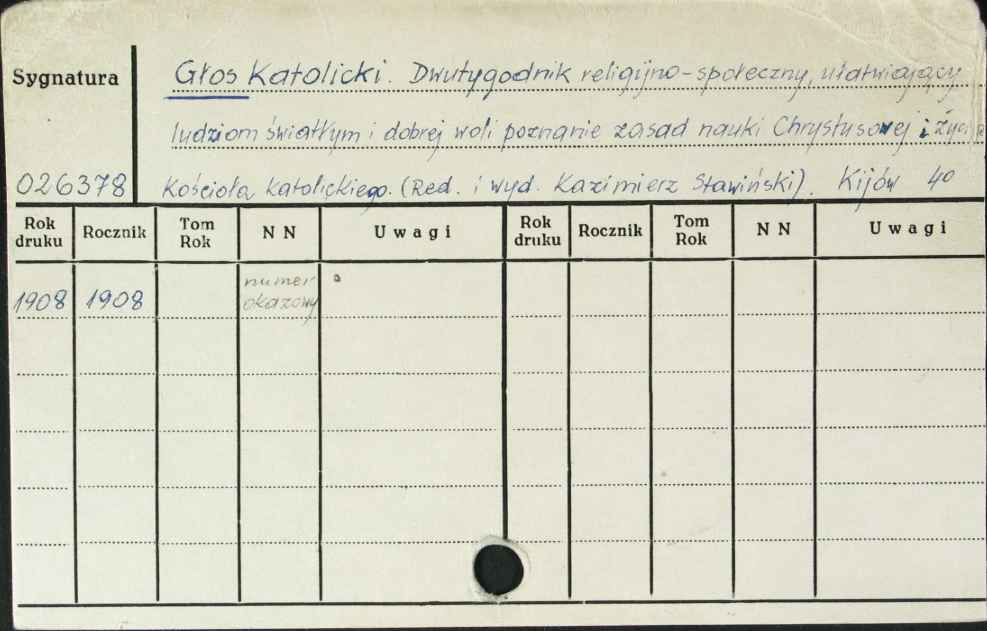 Sygnatura
Głos Katolicki. Dwutygodnik religijno-społeczny, ułatwiający
ludziom światłym i dobrej woli poznanie zasad nauki Chrystusowej i życia
026378
Kościoła katolickiego. (Red. i wyd. Kazimierz Stawiński). Kijów 4o
Rok druku Rocznik Tom Rok N N Uwagi Rok druku Rocznik Tom Rok N N Uwagi
1908 1908 numer okazowy